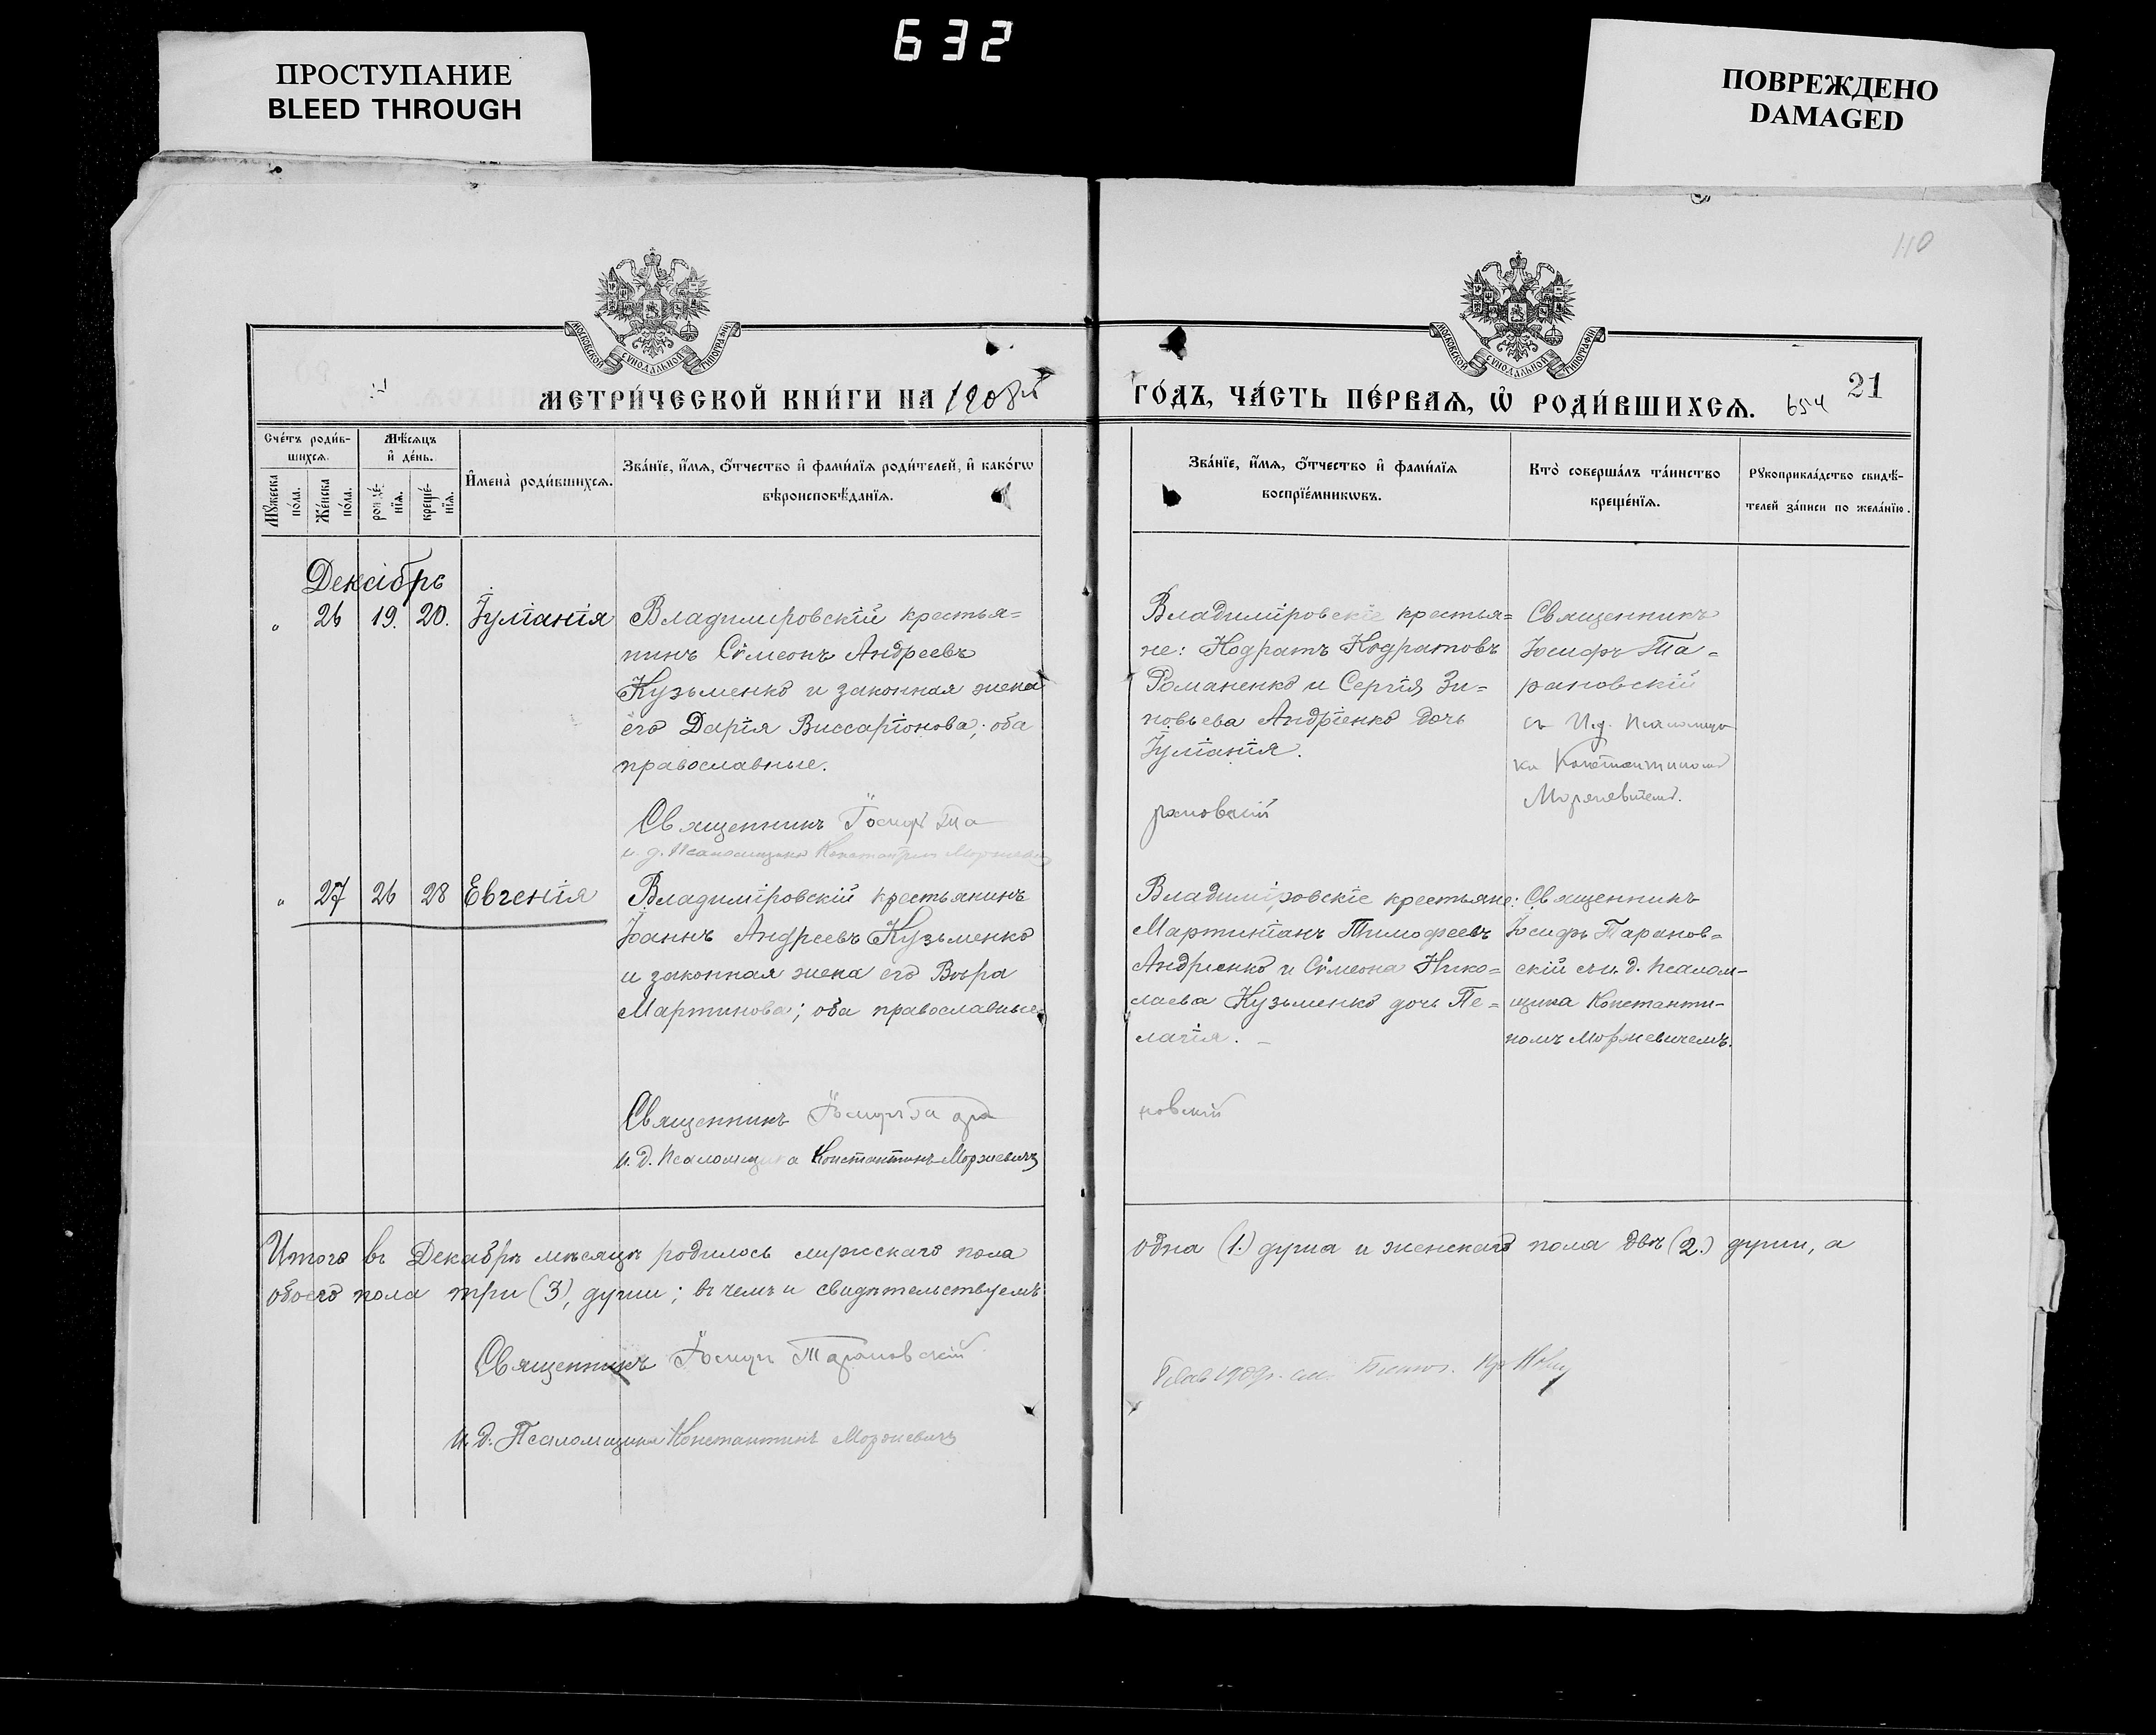 632
ПРОСТУПАНИЕ
BLEED THROUGH
ПОВРЕЖДЕНО
DAMAGED
110
МОСКОВСКОЙ СѴНОДАЛЬНОЙ ТИПОГРАФІИ
МОСКОВСКОЙ СѴНОДАЛЬНОЙ ТИПОГРАФІИ
МЕТРИ́ЧЕСКОЙ КНИ́ГИ НА 1908й
ГО́ДЪ, ЧА́СТЬ ПЕ́РВАѦ, Ѡ҆ РОДИ́ВШИХСѦ. 654 21
Сче́тъ роди́в-
шихсѧ.
Мꙋ́жеска по́ла.
Же́нска по́ла.
Мѣ́сѧцъ
и҆ де́нь.
рожде́-
нїѧ.
креще́-
нїѧ.
И҆мена̀ роди́вшихсѧ.
Зва́нїе, и҆́мѧ, ѻ҆́тчество и҆ фами́лїѧ роди́телей, и҆ како́гѡ
вѣроисповѣ́данїѧ.
Зва́нїе, и҆́мѧ, ѻ҆́тчество и҆ фами́лїѧ
воспрїе́мникѡвъ.
Кто̀ соверша́лъ та́инство
креще́нїѧ.
Рꙋкоприкла́дство свидѣ́-
телей за́писи по жела́нїю.
Декабрь
" 26 19. 20. Іуліанія
Владимировскій крестья=
нинъ Сѵмеонъ Андреевъ
Кузьменко и законная жена
его Дарія Виссаріонова; оба
православные.
Священникъ Іосифъ Та
и. д. Псаломщика Константинъ Моржевичъ
Владиміровскіе крестья=
не: Кодратъ Кодратовъ
Романенко и Сергія Зи=
новьева Андріенко дочь
Іуліанія.
рановскій
Священникъ
Іосифъ Та=
рановскій
съ И.д. Псаломщи
ка Константиномъ
Моржевичемъ.
" 27 26 28 Евгенія
Владиміровскій крестьянинъ
Іоаннъ Андреевъ Кузьменко
и законная жена его Вѣра
Мартинова; оба православные.
Священникъ Іосифъ Тара
И. д. Псаломщика Константинъ Моржевичъ
Владиміровскіе крестьяне:
Мартиніанъ Тимофеевъ
Андріенко и Сѵмеона Нико=
лаева Кузьменко дочь Пе=
лагія.
новскій
Священникъ
Іосифъ Таранов=
скій съ и. д. Псалом-
щика Константи-
номъ Моржевичемъ.
Итого въ Декабрѣ мѣсяцѣ родилось мужскаго пола
одна (1.) душа и женскаго пола двѣ (2.) души, а
обоего пола три (3), души; въ чемъ и свидѣтельствуемъ
Священникъ Іосифъ Тарановскій
И. Д. Псаломщика Константинъ Моржевичъ